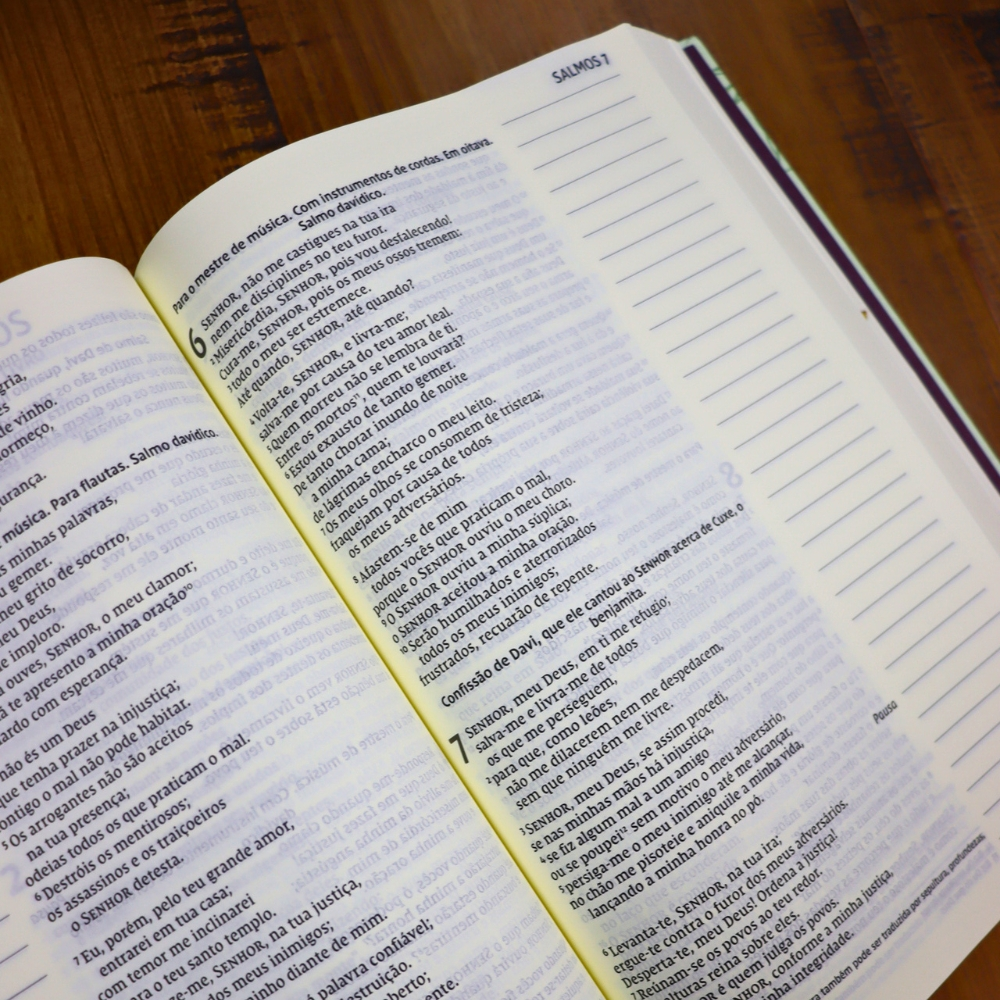 gria,
de vinho.
dormeço,
urança.
música. Para flautas. Salmo davídico.
s minhas palavras,
u gemer.
meu grito de socorro,
meu Deus,
e imploro.
ouves, SENHOR, o meu clamor;
te apresento a minha oração¹⁰
ardo com esperança.
não és um Deus
que tenha prazer na injustiça;
contigo o mal não pode habitar.
⁵ Os arrogantes não são aceitos
na tua presença;
odeias todos os que praticam o mal.
⁶ Destróis os mentirosos;
os assassinos e os traiçoeiros
o SENHOR detesta.
⁷ Eu, porém, pelo teu grande amor,
entrarei em tua casa;
com temor me inclinarei
para o teu santo templo.
SENHOR, na tua justiça,
dos meus inimigos;
minho diante de mim.
palavra confiável;
destruição.
berto;
SALMOS 7
Para o mestre de música. Com instrumentos de cordas. Em oitava.
Salmo davídico.
6 SENHOR, não me castigues na tua ira
nem me disciplines no teu furor.
² Misericórdia, SENHOR, pois vou desfalecendo!
Cura-me, SENHOR, pois os meus ossos tremem:
³ todo o meu ser estremece.
Até quando, SENHOR, até quando?
⁴ Volta-te, SENHOR, e livra-me;
salva-me por causa do teu amor leal.
⁵ Quem morreu não se lembra de ti.
Entre os mortos¹¹, quem te louvará?
⁶ Estou exausto de tanto gemer.
De tanto chorar inundo de noite
a minha cama;
de lágrimas encharco o meu leito.
⁷ Os meus olhos se consomem de tristeza;
fraquejam por causa de todos
os meus adversários.
⁸ Afastem-se de mim
todos vocês que praticam o mal,
porque o SENHOR ouviu o meu choro.
⁹ O SENHOR ouviu a minha súplica;
o SENHOR aceitou a minha oração.
¹⁰ Serão humilhados e aterrorizados
todos os meus inimigos;
frustrados, recuarão de repente.
Confissão de Davi, que ele cantou ao SENHOR acerca de Cuxe, o
benjamita.
7 SENHOR, meu Deus, em ti me refugio;
salva-me e livra-me de todos
os que me perseguem,
² para que, como leões,
não me dilacerem nem me despedacem,
sem que ninguém me livre.
³ SENHOR, meu Deus, se assim procedi,
se nas minhas mãos há injustiça,
⁴ se fiz algum mal a um amigo
ou se poupei¹² sem motivo o meu adversário,
⁵ persiga-me o meu inimigo até me alcançar,
no chão me pisoteie e aniquile a minha vida,
lançando a minha honra no pó.
Pausa
⁶ Levanta-te, SENHOR, na tua ira;
ergue-te contra o furor dos meus adversários.
Desperta-te, meu Deus! Ordena a justiça!
⁷ Reúnam-se os povos ao teu redor.
alturas reina sobre eles.
é quem julga os povos.
SENHOR, conforme a minha justiça,
minha integridade.
também pode ser traduzida por sepultura, profundezas